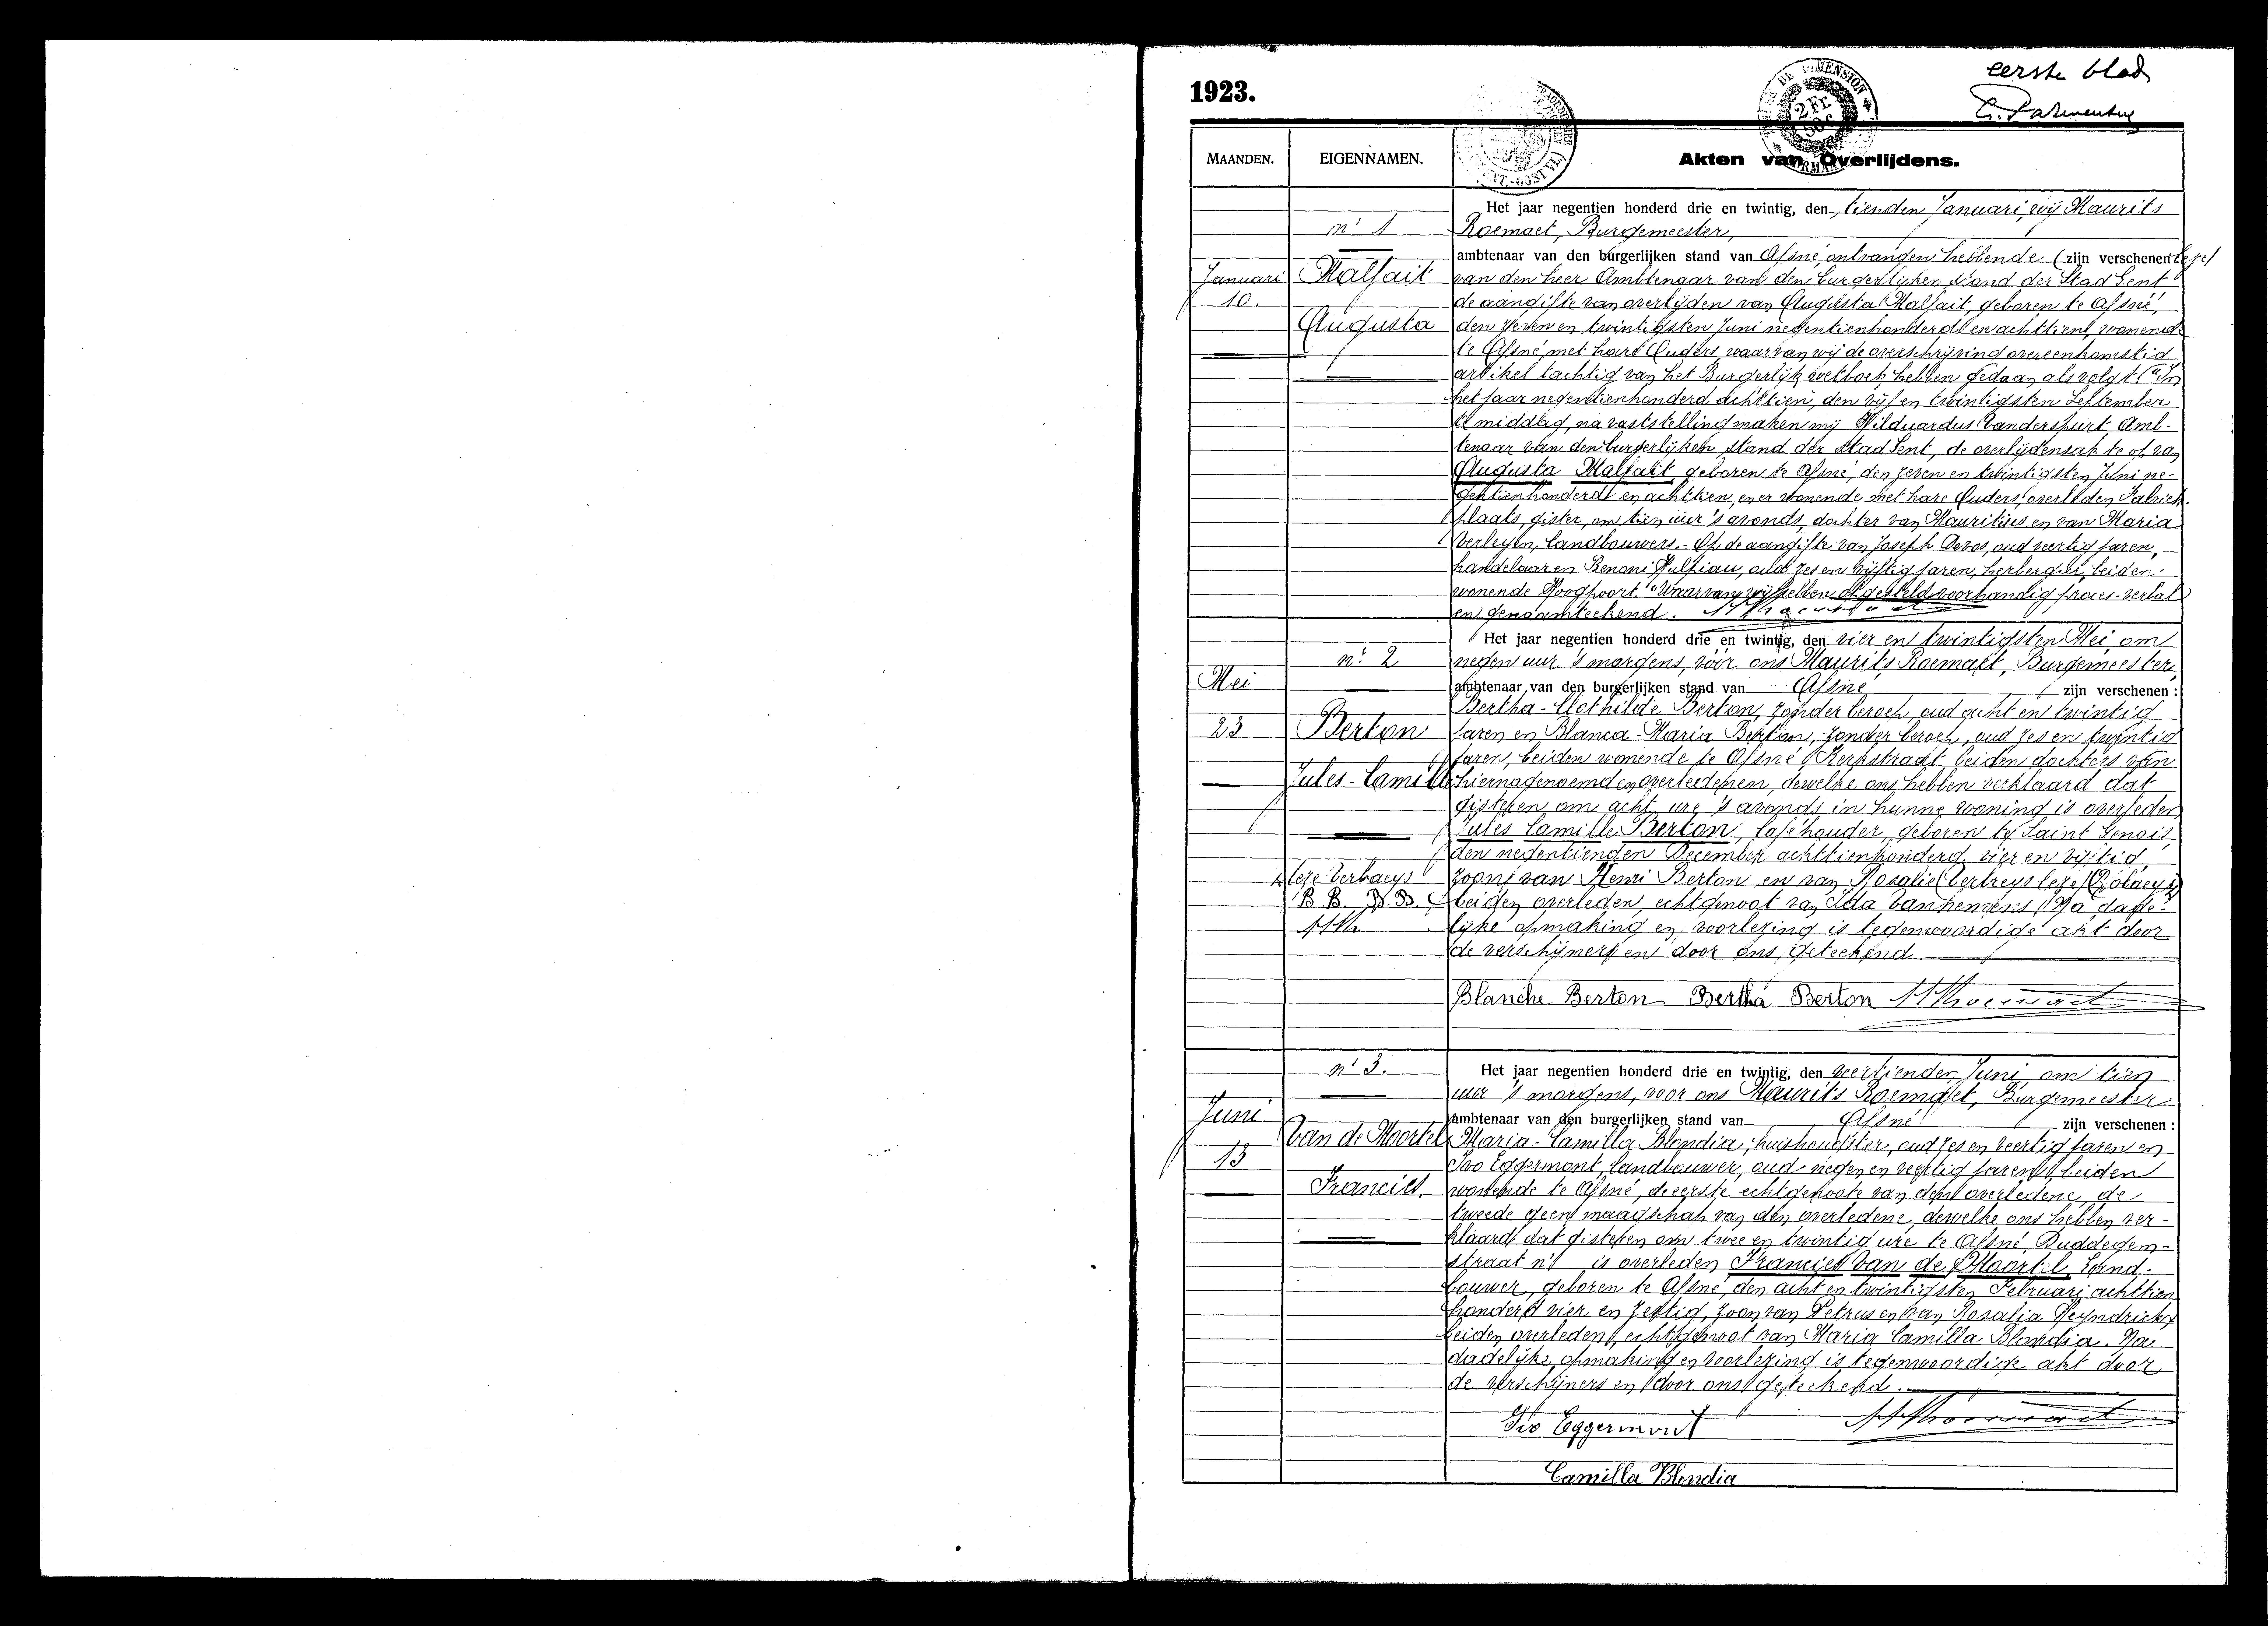 eerste blad
1923.
MAANDEN. EIGENNAMEN. Akten van Overlijdens.
Het jaar negentien honderd drie en twintig, den tienden Januari, wij Maurits
n' 1 Roemaet, Burgemeester,
ambtenaar van den burgerlijken stand van Afsné, ontvangen hebbende (zijn verschenen
Januari Malfait van den heer Ambtenaar van den burgerlijken stand der Stad Gent
10. de aangifte van overlijden van Augusta Malfait, geboren te Afsné,
Augusta den zeven en twintigsten Juni negentienhonderd en achttien, wonende
te Afsné met hare Ouders, waarvan wij de overschrijving overeenkomstig
artikel tachtig van het Burgerlijk wetboek hebben gedaan als volgt: "In
het jaar negentienhonderd achttien, den vijf en twintigsten September
middag, na vaststelling maken wij Amb-
tenaar van den burgerlijken stand der stad Gent, de overlijdensakte op van
Augusta Malfait geboren te Afsné, den zeven en twintigsten Juni ne-
gentienhonderd en achttien, er wonende met hare Ouders, overleden
plaats, gister, om tien uur 's avonds, dochter van Mauritius en van Maria
Verleyen, landbouwers. - Op de aangifte van Joseph Devos, oud veertig jaren,
handelaar en Benoni Hulpiau, oud zes en vijftig jaren, herbergier, beiden
wonende Hoogpoort" Waarvan wij hebben opgesteld voorhandig proces-verbal
en genaamteekend.
Het jaar negentien honderd drie en twintig, den vier en twintigsten Mei om
n: 2 negen uur 's morgens, vóór ons Maurits Roemaet, Burgemeester,
Mei ambtenaar van den burgerlijken stand van Afsné zijn verschenen :
Bertha-Clothilde Berton, zonder beroep, oud acht en twintig
23 Berton jaren en Blanca-Maria Berton, zonder beroep, oud zes en twintig
jaren, beiden wonende te Afsné Kerkstraat beiden dochters van
Jules-Camille hiernagenoemden overledenen, dewelke ons hebben verklaard dat
gisteren om acht ure 's avonds in hunne woning is overleden
Jules Camille Berton, caféhouder, geboren te Saint Genois,
den negentienden December achttienhonderd vier en vijftig,
leze Verbaeys zoon van Henri Berton en van Rosalie
B B. B. B. beiden overleden, echtgenoot van Ida Na dade-
lijke opmaking en voorlezing is tegenwoordige akt door
de verschijners en door ons geteekend
Blanche Berton Bertha Berton MRoemaet
n' 3. Het jaar negentien honderd drie en twintig, den veertienden Juni, om tien
uur 's morgens, voor ons Maurits Roemaet, Burgemeester
Juni ambtenaar van den burgerlijken stand van Afsné zijn verschenen :
Van de Moortel Maria-Camilla Blondia, huishoudster, oud zes en veertig jaren en
13 Ivo Eggermont, landbouwer, oud negen en veertig jaren, beiden
Francies. wonende te Afsné, de eerste echtgenoote van den overledene, de
tweede geen maagschap van den overledene, dewelke ons hebben ver-
klaard dat gisteren om twee en twintig ure te Afsné, Buddegem-
straat n' is overleden Francies Van de Moortel, Land-
bouwer, geboren te Afsné, den acht en twintigsten Februari achttien
honderd vier en zestig, zoon van Petrus en van Rosalia Heyndrickx
beiden overleden, echtgenoot van Maria Camilla Blondia. Na
dadelijke opmaking en voorlezing is tegenwoordige akt door
de verschijners en door ons geteekend.
Ivo Eggermont MRoemaet
Camilla Blondia